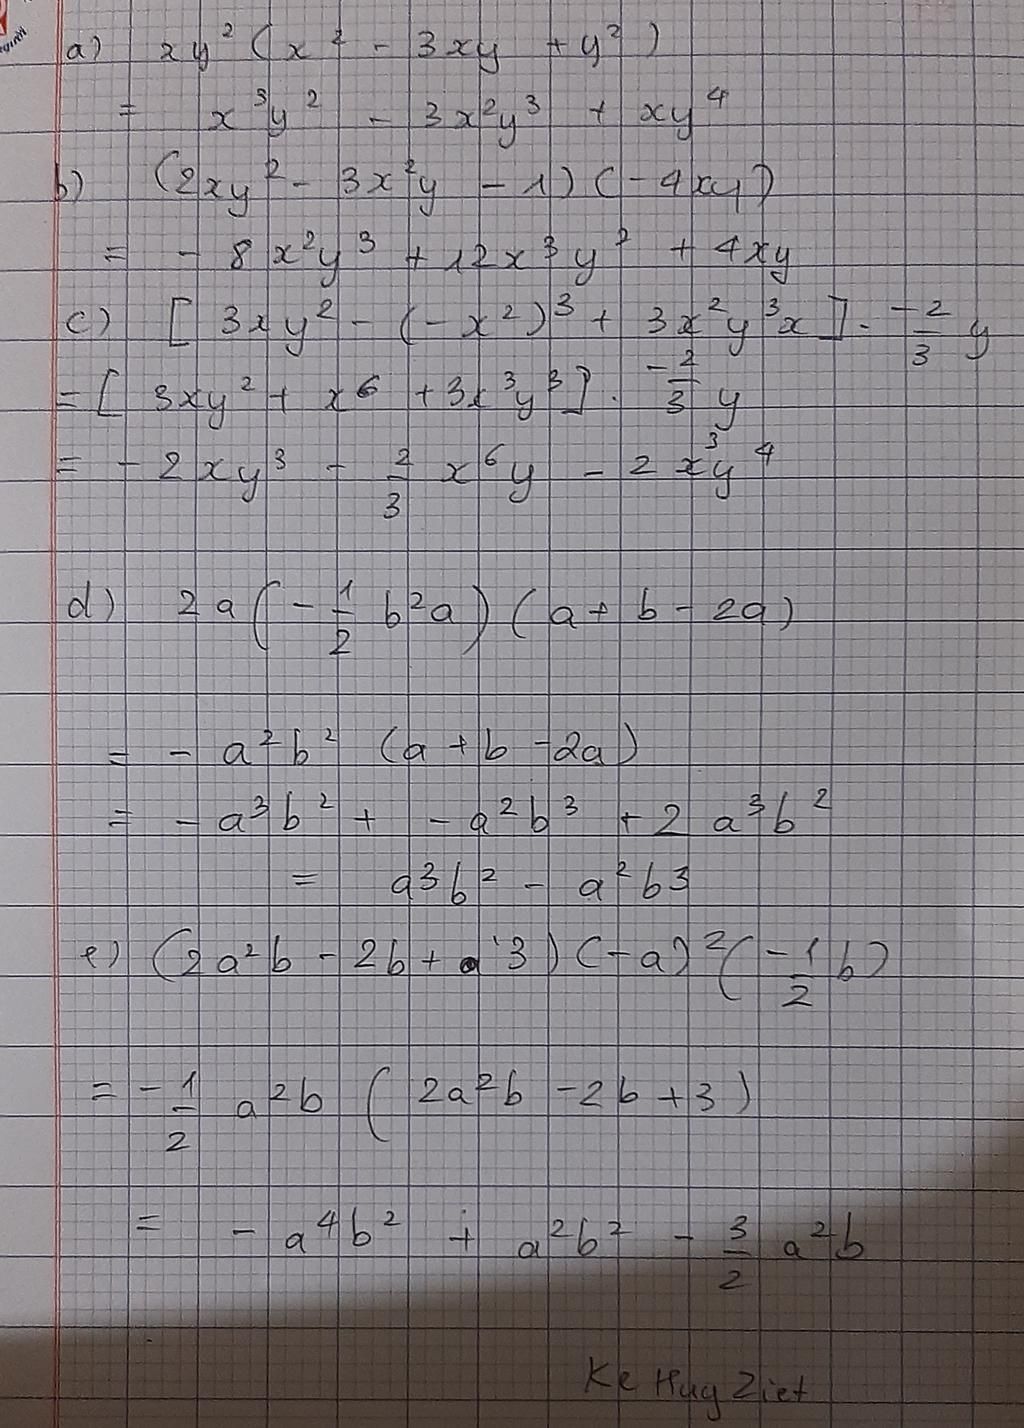 người
a) xy² (x² - 3xy + y²)
= x³y² - 3x²y³ + xy⁴
b) (2xy² - 3x²y - 1) (-4xy)
= - 8x²y³ + 12x³y² + 4xy
c) [3xy² - (-x²)³ + 3x²y³x] . -2/3 y
= [3xy² + x⁶ + 3x³y³] . -2/3 y
= - 2xy³ - 2/3 x⁶y - 2x³y⁴
d) 2a(-1/2 b²a) (a + b - 2a)
= - a²b² (a + b - 2a)
= - a³b² + - a²b³ + 2a³b²
= a³b² - a²b3
e) (2a²b - 2b + 3) (-a)² (-1/2 b)
= -1/2 a²b (2a²b - 2b + 3)
= - a⁴b² + a²b² - 3/2 a²b